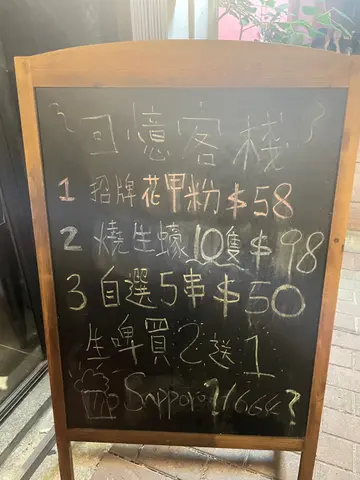 回憶客棧
1 招牌花甲粉 $58
2 燒生蠔10隻$98
3 自選5串$50
生啤買2送1
Sapporo